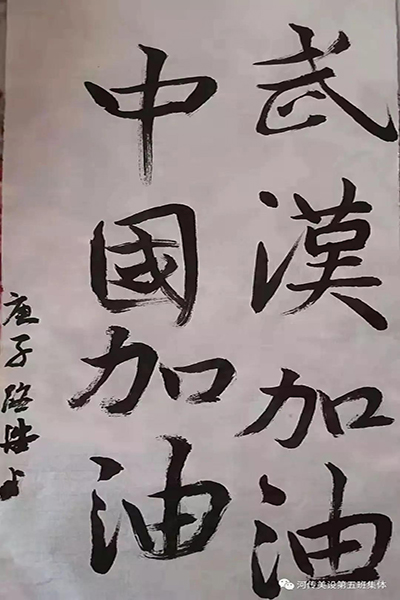 武漢加油
中國加油
庚子路
河传美设第五班集体